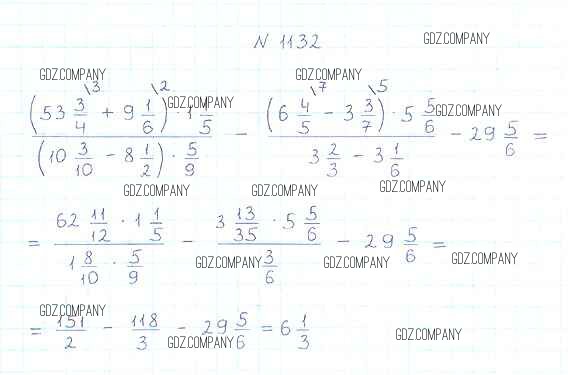 N 1132
GDZ.COMPANY
GDZ.COMPANY GDZ.COMPANY
\3 \2 \7 \5
(53 3/4 + 9 1/6) · 1 1/5 / (10 3/10 - 8 1/2) · 5/9 - (6 4/5 - 3 3/7) · 5 5/6 / 3 2/3 - 3 1/6 - 29 5/6 =
GDZ.COMPANY GDZ.COMPANY
GDZ.COMPANY GDZ.COMPANY GDZ.COMPANY
= 62 11/12 · 1 1/5 / 1 8/10 · 5/9 - 3 13/35 · 5 5/6 / 3/6 - 29 5/6 =
GDZ.COMPANY GDZ.COMPANY GDZ.COMPANY
GDZ.COMPANY
= 151/2 - 118/3 - 29 5/6 = 6 1/3
GDZ.COMPANY GDZ.COMPANY